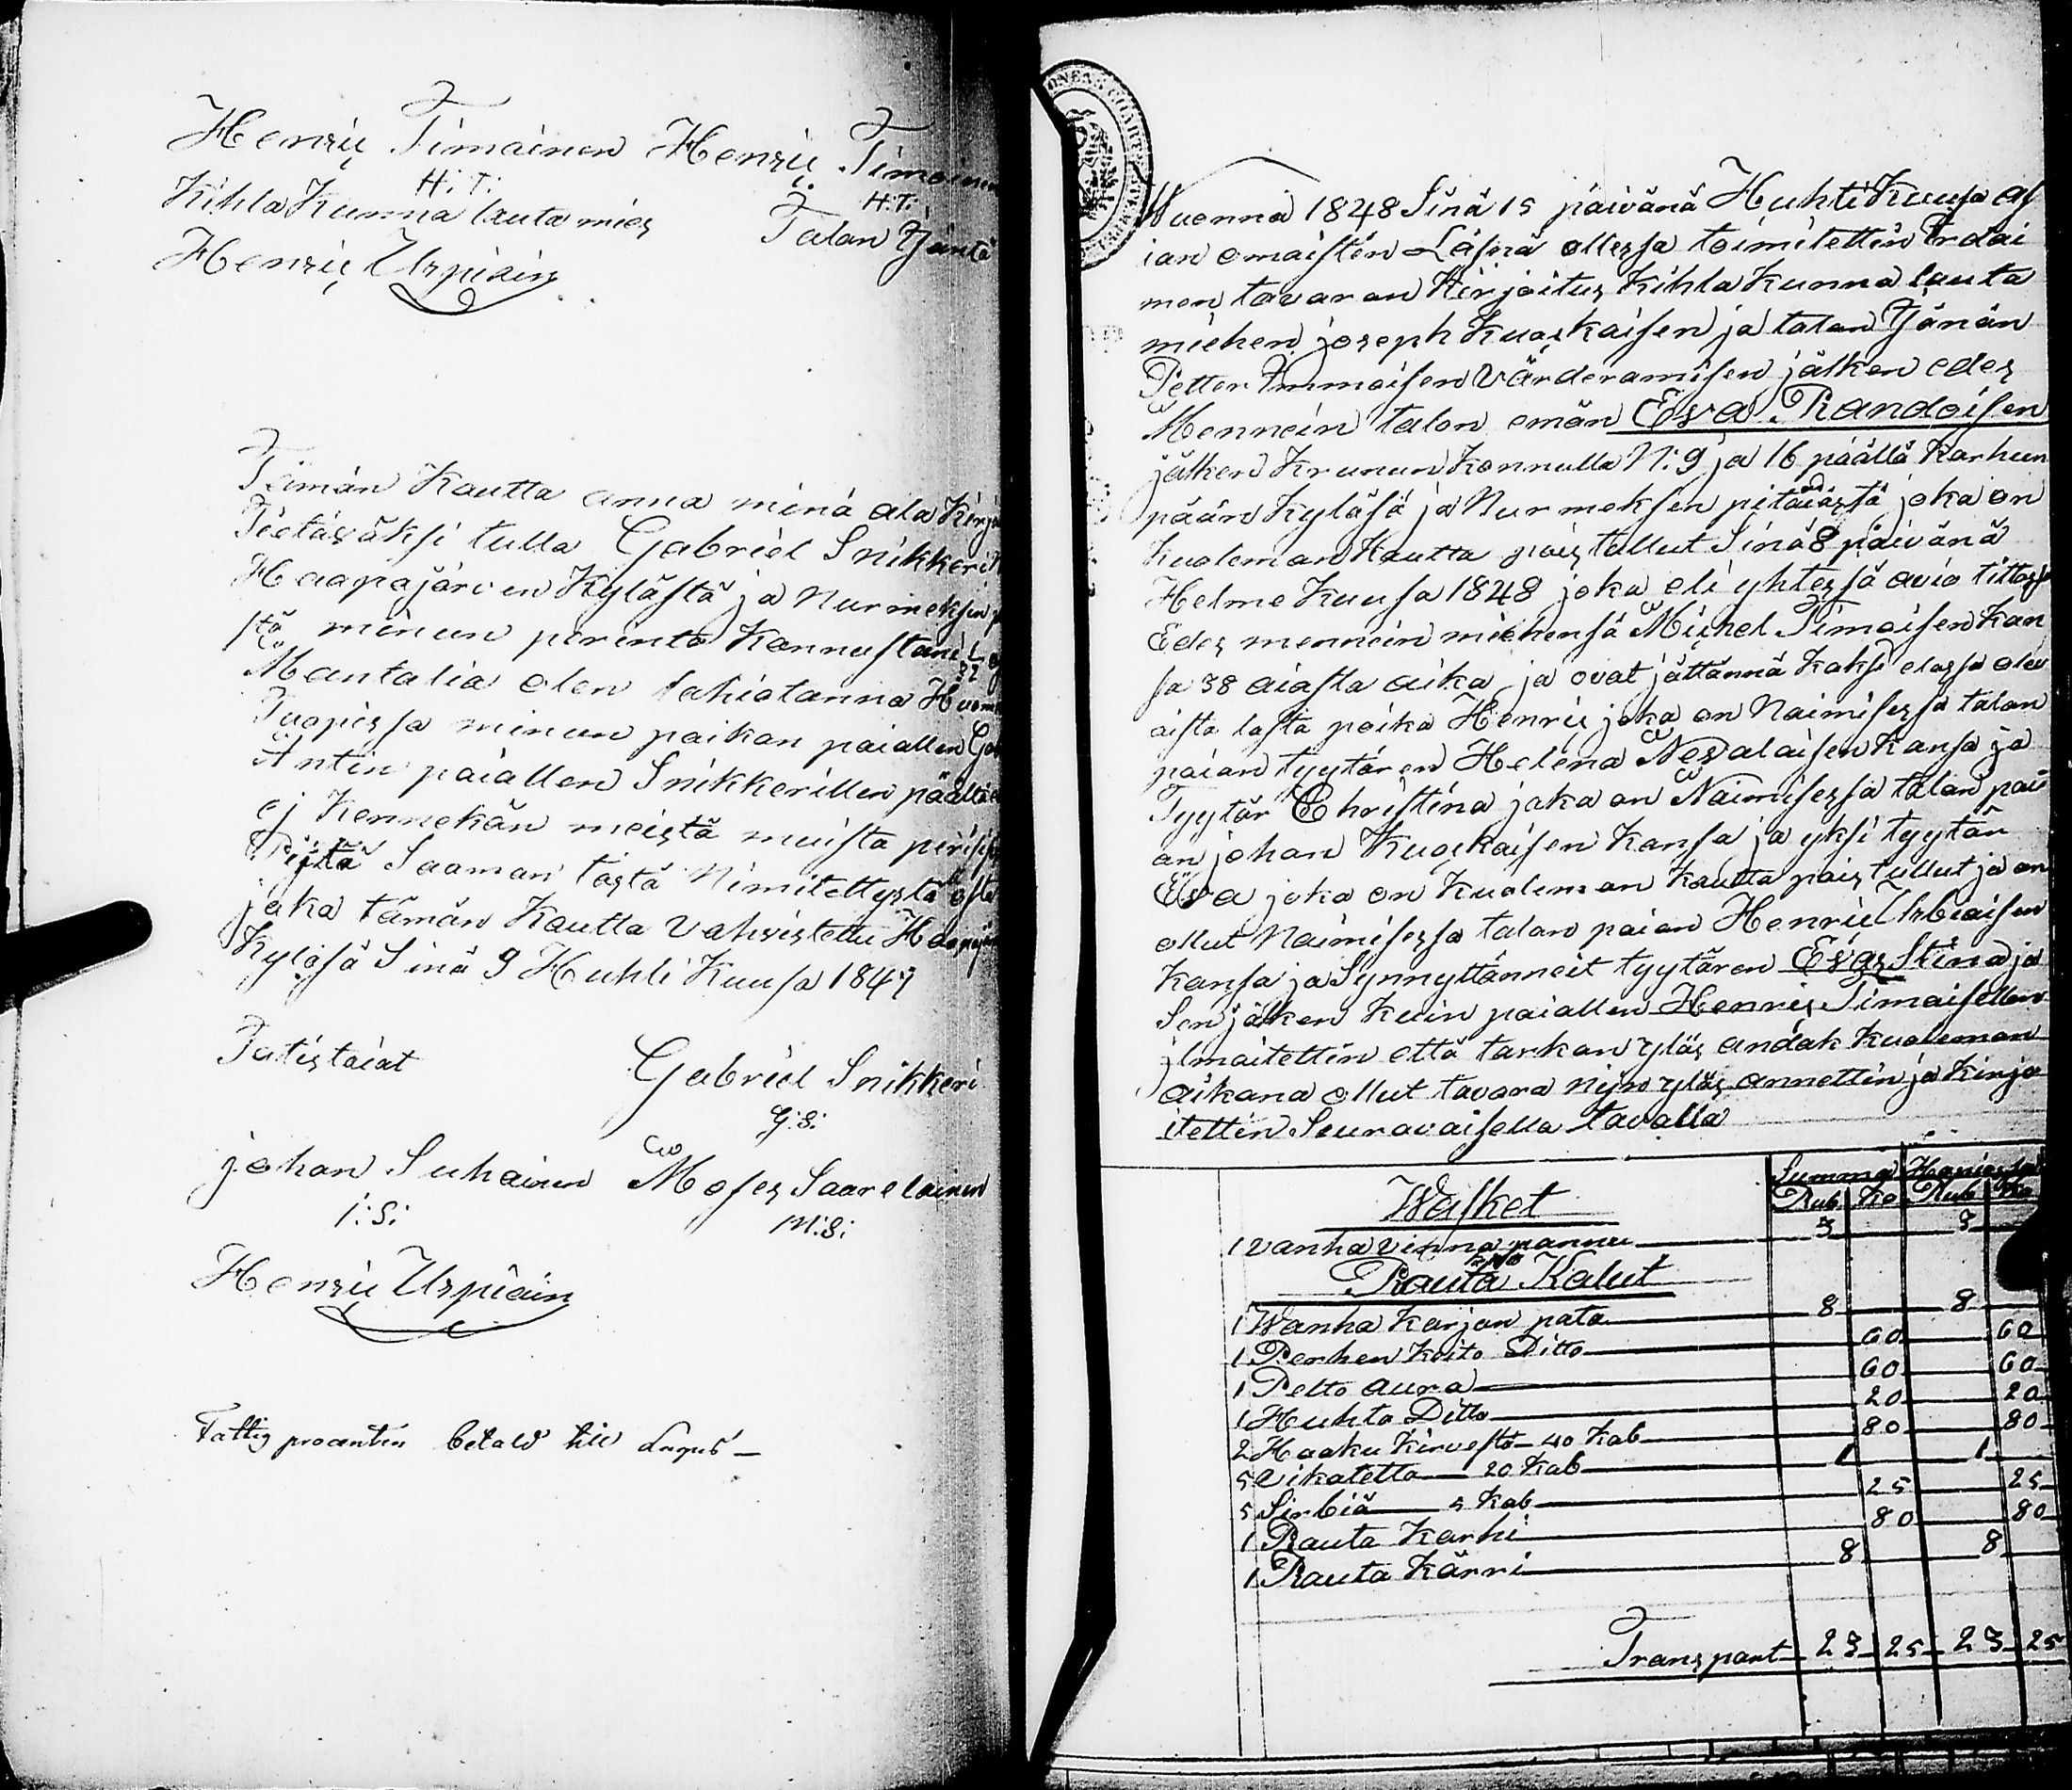 Henric Timainen Henric Timoinen
H:T: H:T:
Kihla Kunna lauta mies Talan Jsäntä
Henric Urpiain
Tämän Kautta anna minä ala Kirj
Tietäväksi tulla Gabriel Snikkeri
Haapajärven Kylästä ja Nurmeksen
stä minun perintö Konnustani
Mantalia olen
Tuopissa minun paikan paiallen
Antin paiallen Snikkerillen päältä
ej Kennekän meistä muista
Pijtä Saaman tästä Nimitettystä
joka tämän Kautta Vahvistettu
Kyläsä Sinä 9 Huhti Kuusa 1847
Tatistaiat Gabriel Snikkeri
G:S:
johan Suhainen Moses Saarelainen
j:S: M:S:
Henric Urpiain
Fattig procenten betald till
Wuonna 1848 Sinä 15 päivänä Huhti Kuusa as
ian omaisten Läsnä ollessa toimitettin Irdai
men tavaran Kirjoitus Kihla Kunna lauta
miehen joseph Kuaskaisen ja talan Jsänän
Petter Immoisen Värderamisen jälken edes
Mennein talon emän Eva Randoisen
jälken Krunun Konnulla N:9 ja 16 päällä Karhun
pään Kyläsä ja Nurmeksen pitäiästä joka on
Kualeman Kautta pois tullut Sinä 8 päivänä
Helme Kuusa 1848 joka eli yhtessä avio
Edes mennein miehensä Michel Timoisen Kan
sa 38 aiasta aika ja ovat jättännä Kaksi elossa olev
aista lasta poika Henric joka on Naimisessa talan
paian tyytären Helena Nevalaisen Kansa ja
Tyytär Christina joka on Naimisessa talan pai
an johan Kuaskaisen Kansa ja yksi tyytär
Eva joka on Kualeman Kautta pois tullut ja on
ollut Naimisessa talan paian Henric Urbiaisen
Kansa ja Synnyttänneit tyytären Evas Stina ja
Sen jälken Kuin paiallen Henric Timaisellen
jlmaitettin että tarkan ylös andak Kualeman
aikana ollut tavara nijn ylös annettin ja Kirjo
itettin Seuravaisella tavalla
Summa
Rub Ko Rub Ko
Wasket
1 vanha vinna pannu 3 3
Rauta Kalut
1 Wanha Karjan pata 8 8
1 Perhen Keito Ditto 60 60
1 Pelto aura 60 60
1 Huhta Ditto 20 20
2 Haaku Kirvestä 40 Kob 80 80
5 Vikatetta 20 Kob 1 1
5 Sirbiä 5 Kob 25 25
1 Rauta Karhi 80 80
1 Rauta Kärri 8 8
Transport 23 25 23 25